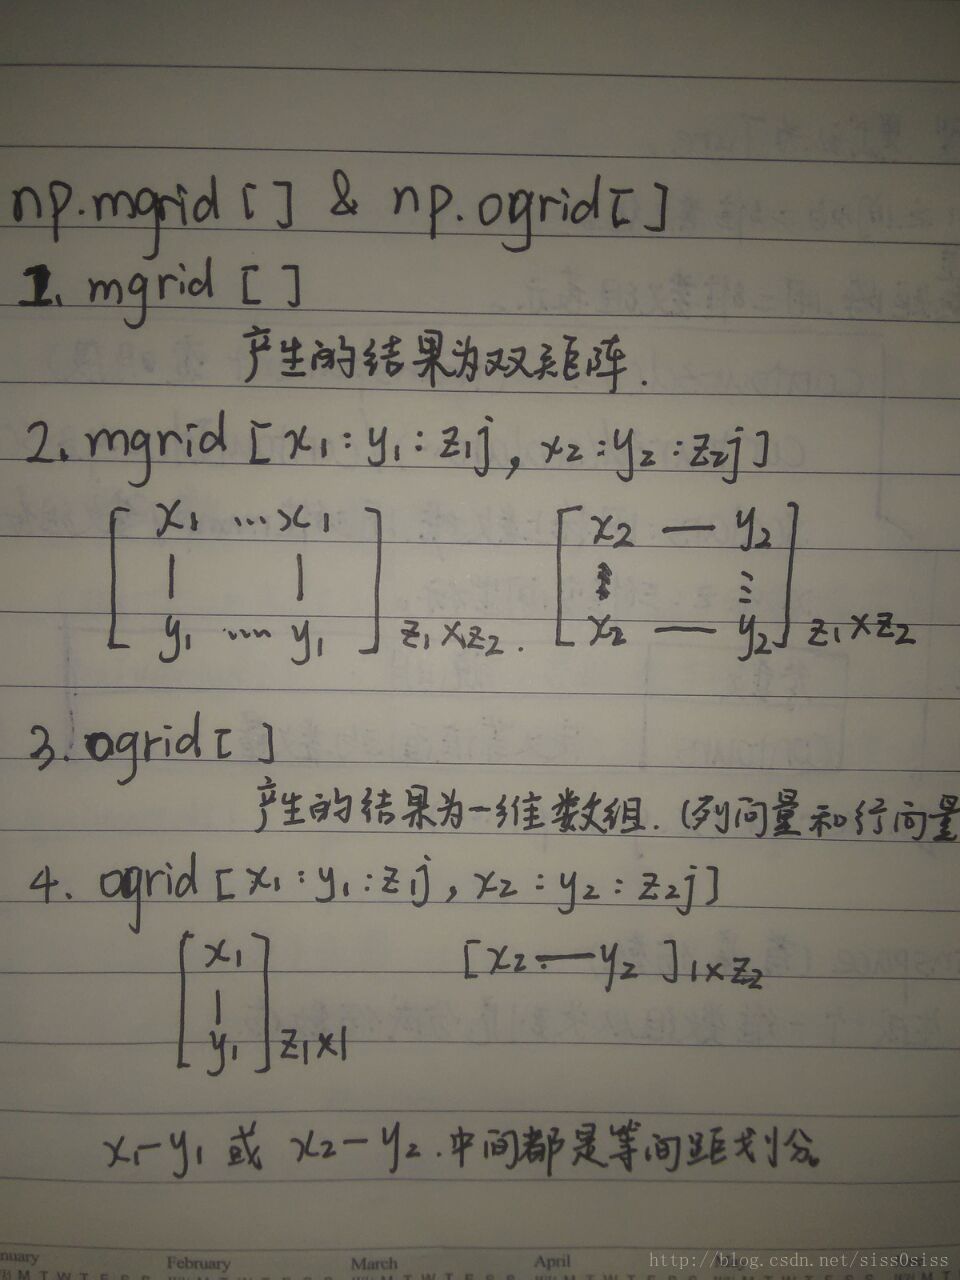 np.mgrid [ ] & np.ogrid [ ]
1. mgrid [ ]
产生的结果为双矩阵.
2. mgrid [ x₁ : y₁ : z₁j , x₂ : y₂ : z₂j ]
[ x₁ ... x₁ | | y₁ ..... y₁ ] z₁×z₂. [ x₂ — y₂ ⋮ ⋮ x₂ — y₂ ] z₁×z₂
3. ogrid [ ]
产生的结果为一维数组. (列向量和行向量
4. ogrid [ x₁ : y₁ : z₁j , x₂ : y₂ : z₂j ]
[ x₁ | y₁ ] z₁×1 [ x₂ — y₂ ] 1×z₂
x₁—y₁ 或 x₂—y₂. 中间都是等间距划分。
nuary February March April
http://blog.csdn.net/siss0siss